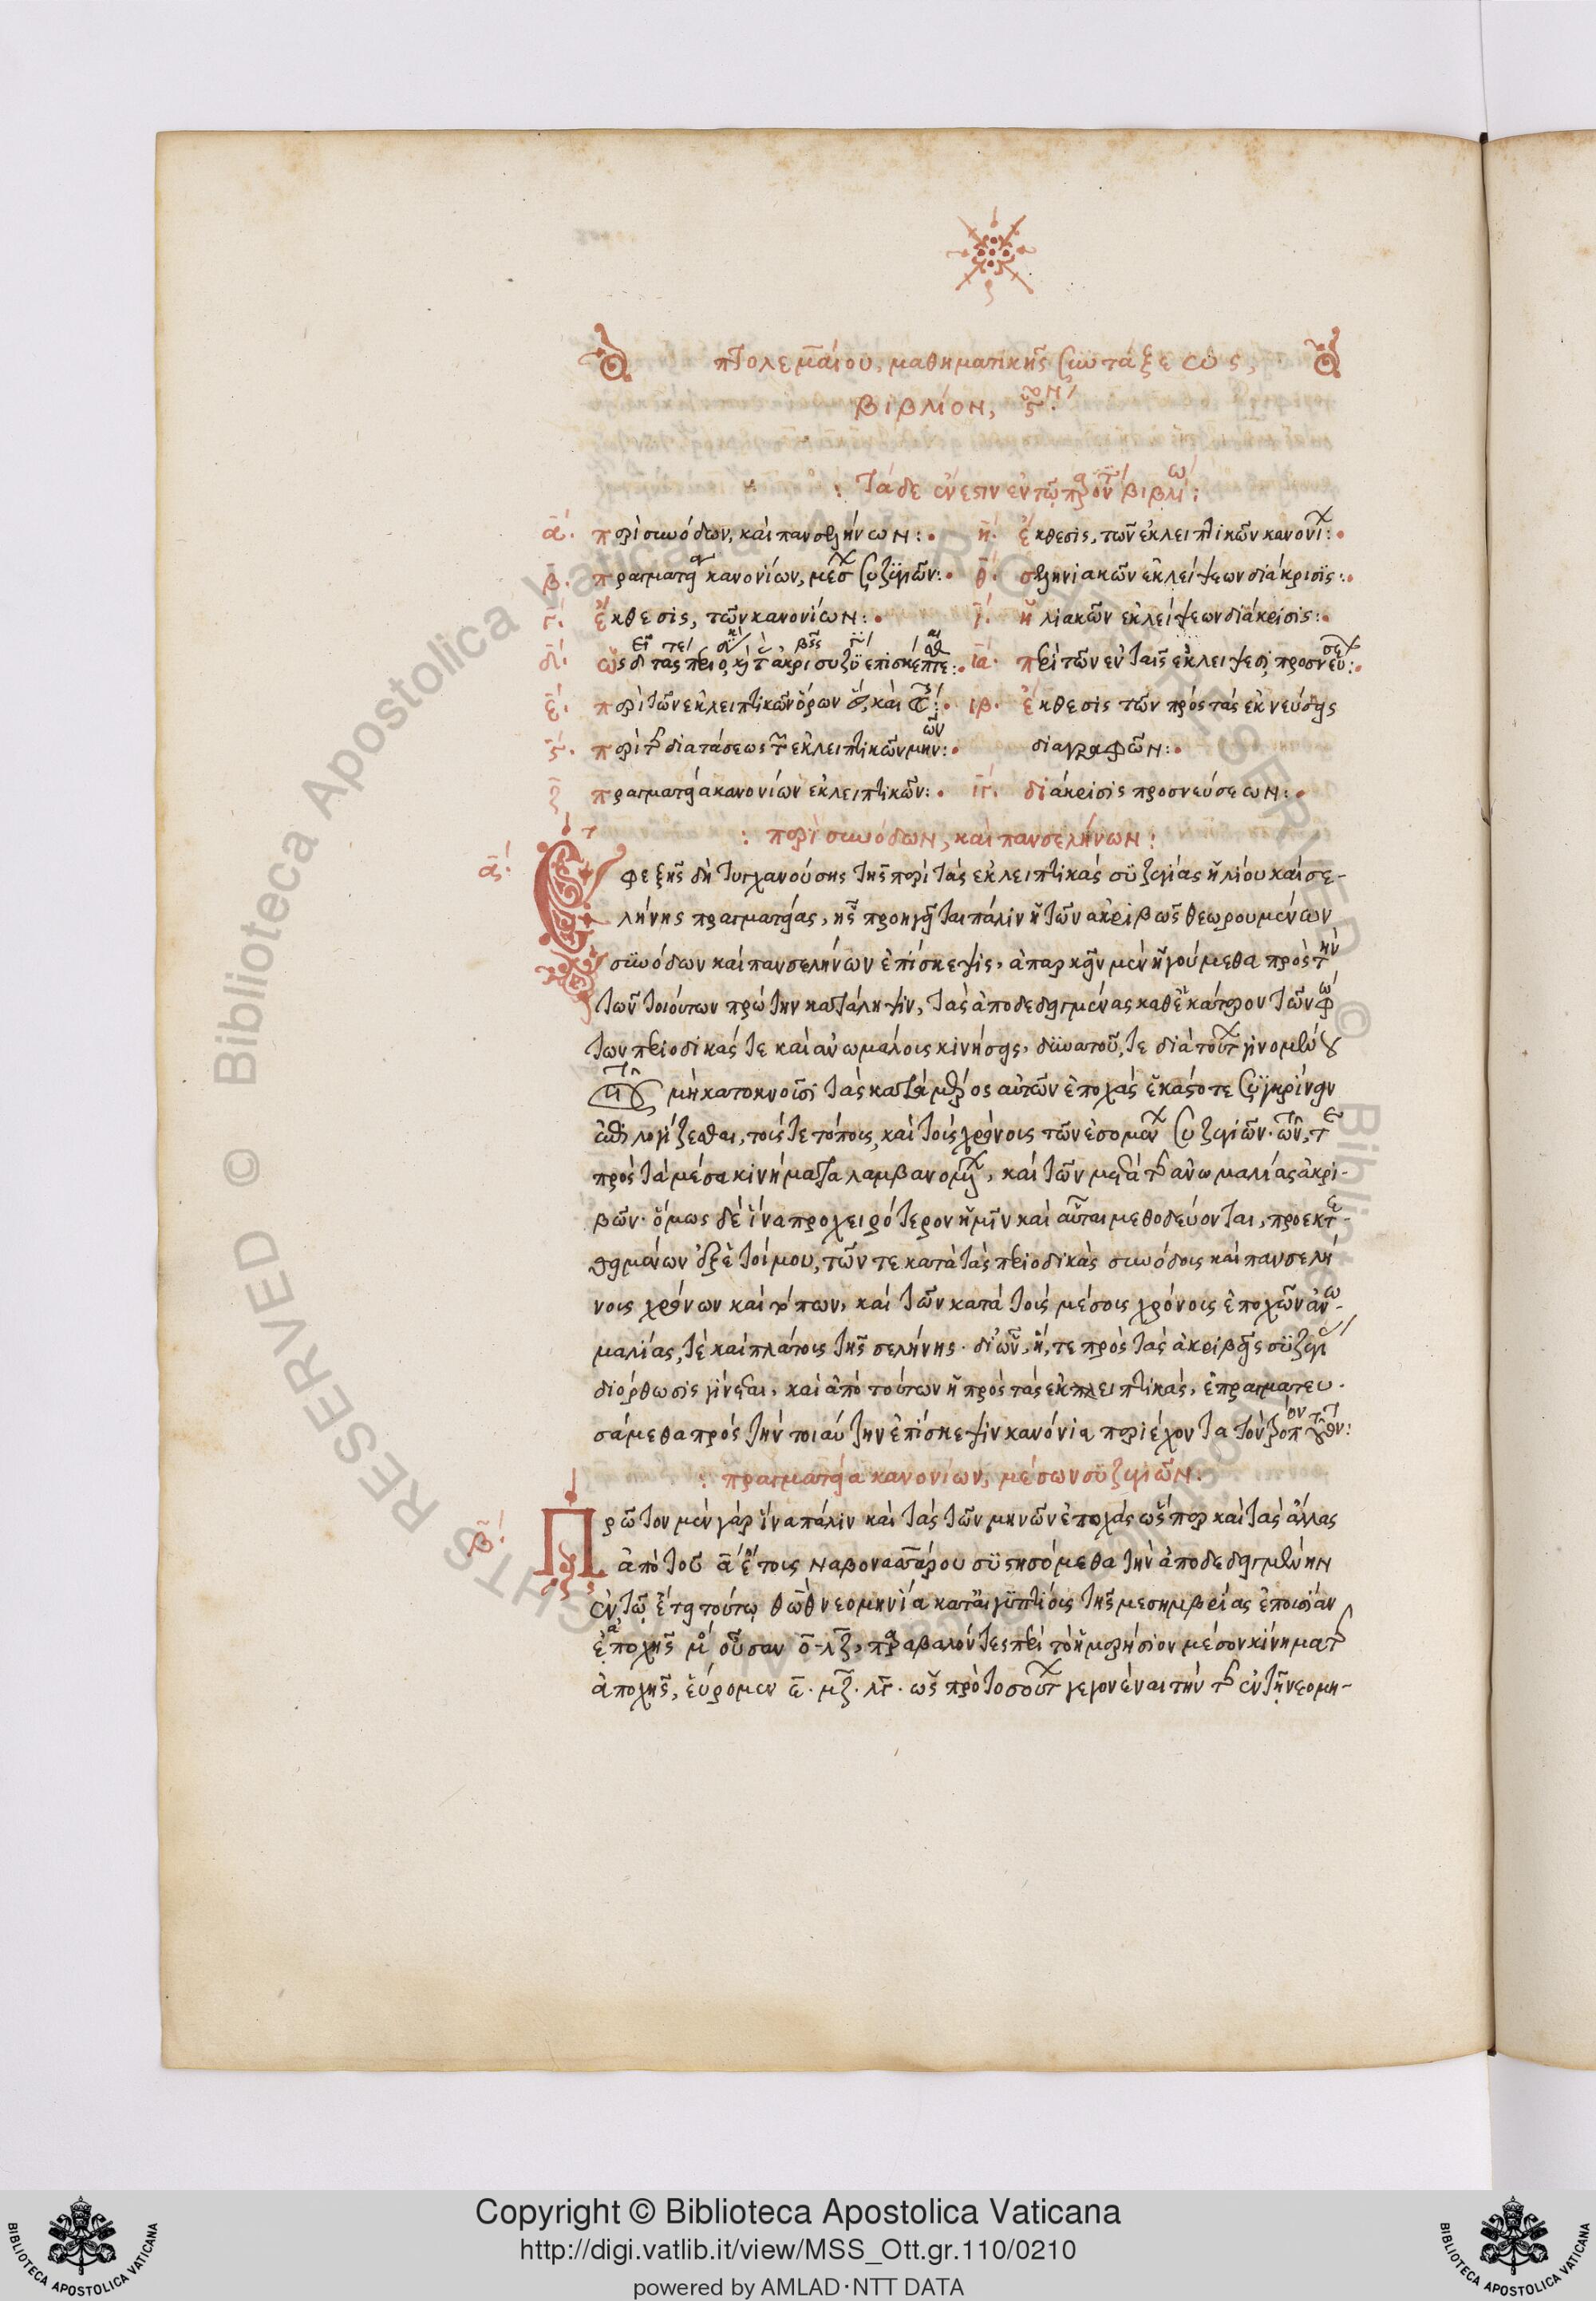 πτολεμαίου, μαθηματικῆς συντάξεως,
βιβλίον, ϛον.
: Τάδε ἔνεστιν ἐν τῷ βιβλίω :
α. περὶ συνόδων, καὶ πανσελήνων :
β. πραγματεία κανονίων, μέσων συζυγιῶν :
γ. ἔκθεσις, τῶν κανονίων :
δ. ὡς δεῖ τάς τε περιοδικὰς καὶ τὰς ἀκριβεῖς συζυγίας ἐπισκέπτεσθαι :
ε. περὶ τῶν ἐκλειπτικῶν ὅρων
ϛ. περὶ τῆς διαστάσεως τῶν ἐκλειπτικῶν μηνῶν :
ζ. πραγματεία κανονίων ἐκλειπτικῶν :
η. ἔκθεσις, τῶν ἐκλειπτικῶν κανονίων :
θ. σεληνιακῶν ἐκλείψεων διάκρισις :
ι. ἡλιακῶν ἐκλείψεων διάκρισις :
ια. περὶ τῶν ἐν ταῖς ἐκλείψεσι προσνεύσεων :
ιβ. ἔκθεσις τῶν πρὸς τὰς ἐκνεύσεις
διαγραφῶν :
ιγ. διάκρισις προσνεύσεων :
: περὶ συνόδων, καὶ πανσελήνων :
α. Ἐφεξῆς δὴ τυγχανούσης τῆς περὶ τὰς ἐκλειπτικὰς συζυγίας ἡλίου καὶ σε-
λήνης πραγματείας, ἧς προηγεῖται πάλιν ἡ τῶν ἀκριβῶς θεωρουμένων
συνόδων καὶ πανσελήνων ἐπίσκεψις, ἀπαρκεῖν μὲν ἡγούμεθα πρὸς τὴν
τῶν τοιούτων πρώτην κατάληψιν, τὰς ἀποδεδειγμένας καθ' ἑκάτερον τῶν φώ
των περιοδικάς τε καὶ ἀνωμάλους κινήσεις, δυνατοῦ τε διὰ τούτων γινομένου
μὴ κατοκνοῦσι τὰς κατὰ μέρος αὐτῶν ἐποχὰς ἑκάστοτε συγκρίνειν
ἐπιλογίζεσθαι, τούς τε τόπους, καὶ τοὺς χρόνους τῶν ἐσομένων συζυγιῶν. τῶν τε
πρὸς τὰ μέσα κινήματα λαμβανομένων, καὶ τῶν μετὰ τῆς ἀνωμαλίας ἀκρι-
βῶν. ὅμως δὲ ἵνα προχειρότερον ἡμῖν καὶ αὗται μεθοδεύονται, προεκτε-
θειμένων ἐξ ἑτοίμου, τῶν τε κατὰ τὰς περιοδικὰς συνόδους καὶ πανσελή
νους χρόνων καὶ τόπων, καὶ τῶν κατὰ τοὺς μέσους χρόνους ἐποχῶν ἀνω-
μαλίας, τὲ καὶ πλάτους τῆς σελήνης. δι' ὧν, ἥ, τε πρὸς τὰς ἀκριβεῖς συζυγίας
διόρθωσις γίνεται, καὶ ἀπὸ τούτων ἡ πρὸς τὰς ἐκλειπτικάς, ἐπραγματευ-
σάμεθα πρὸς τὴν τοιαύτην ἐπίσκεψιν κανόνια περιέχοντα τὸν τρόπον τοῦτον :
: πραγματεία κανονίων, μέσων συζυγιῶν :
β. Πρῶτον μὲν γὰρ ἵνα πάλιν καὶ τὰς τῶν μηνῶν ἐποχὰς ὥσπερ καὶ τὰς ἄλλας
ἀπὸ τοῦ α ἔτους Ναβονασσάρου συστησόμεθα τὴν ἀποδεδειγμένην
ἐν τῷ ἔτει τούτῳ θὼθ νεομηνία κατ' αἰγυπτίους τῆς μεσημβρίας ἐπουσίαν
ἐποχῆς μο οὖσαν ο λζ, παραβαλόντες περὶ τὸ ἡμερήσιον μέσον κίνημα τῆς
ἀποχῆς, εὕρομεν ε. μζ. λγ. ὡς πρὸ τοσούτων γεγονέναι τὴν τῆς ἐν τῇ νεομη-
© Biblioteca Apostolica Vaticana ALL RIGHTS RESERVED
Copyright © Biblioteca Apostolica Vaticana
http://digi.vatlib.it/view/MSS_Ott.gr.110/0210
powered by AMLAD·NTT DATA
BIBLIOTECA APOSTOLICA VATICANA
BIBLIOTECA APOSTOLICA VATICANA